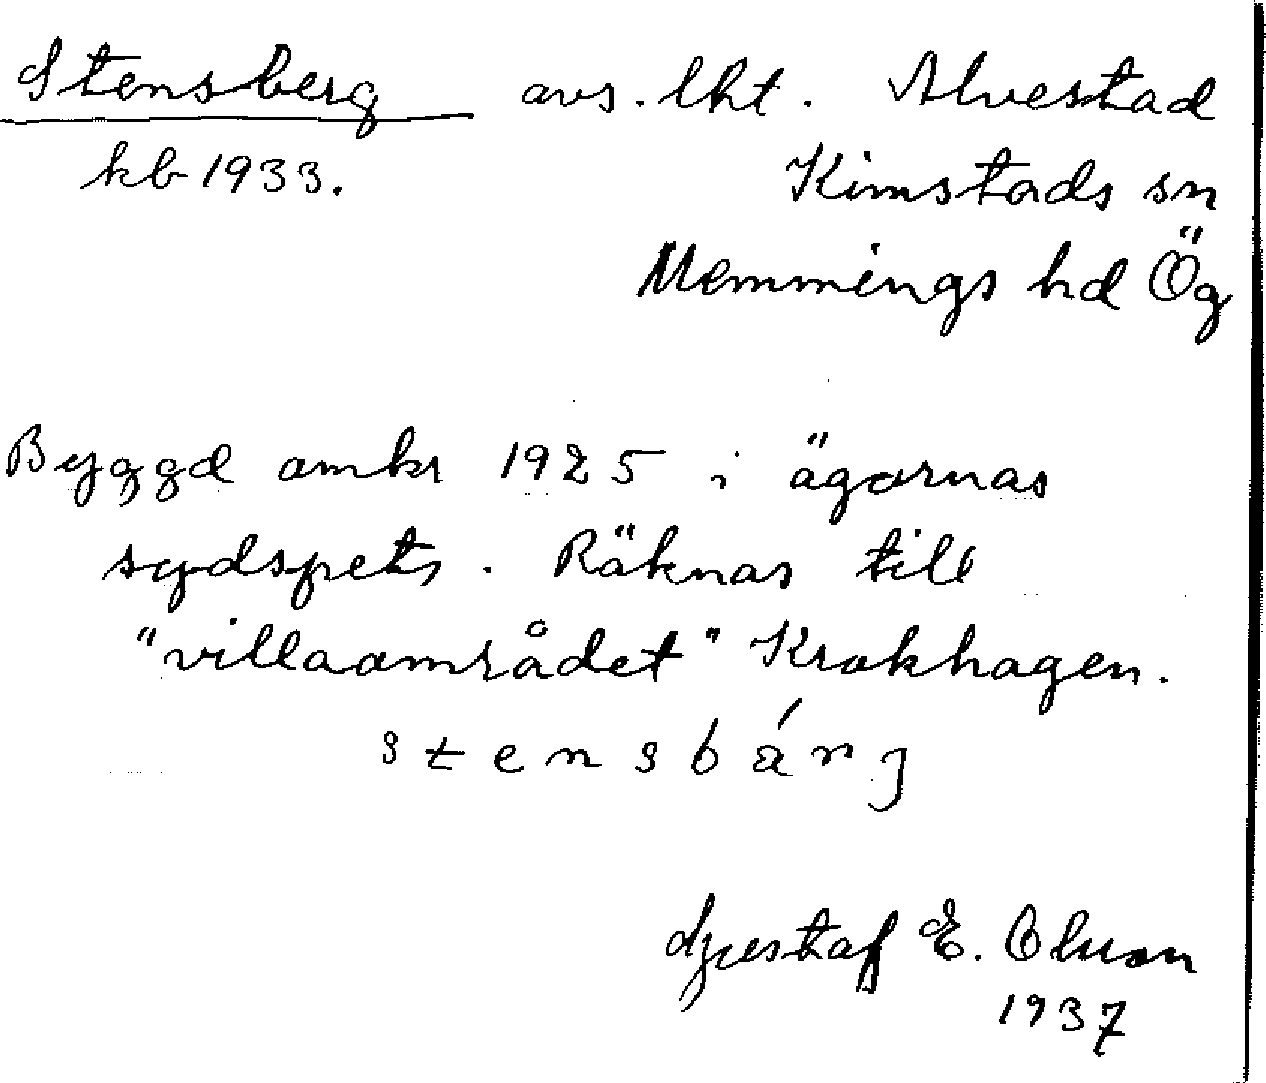 Stensberg avs. lht. Alvestad
kb 1933. Kimstads sn
Memmings hd Ög
Byggd omkr 1925 i ägornas
sydspets. Räknas till
"villaområdet" Krokhagen.
stensbárj
Gustaf E. Olsson
1937